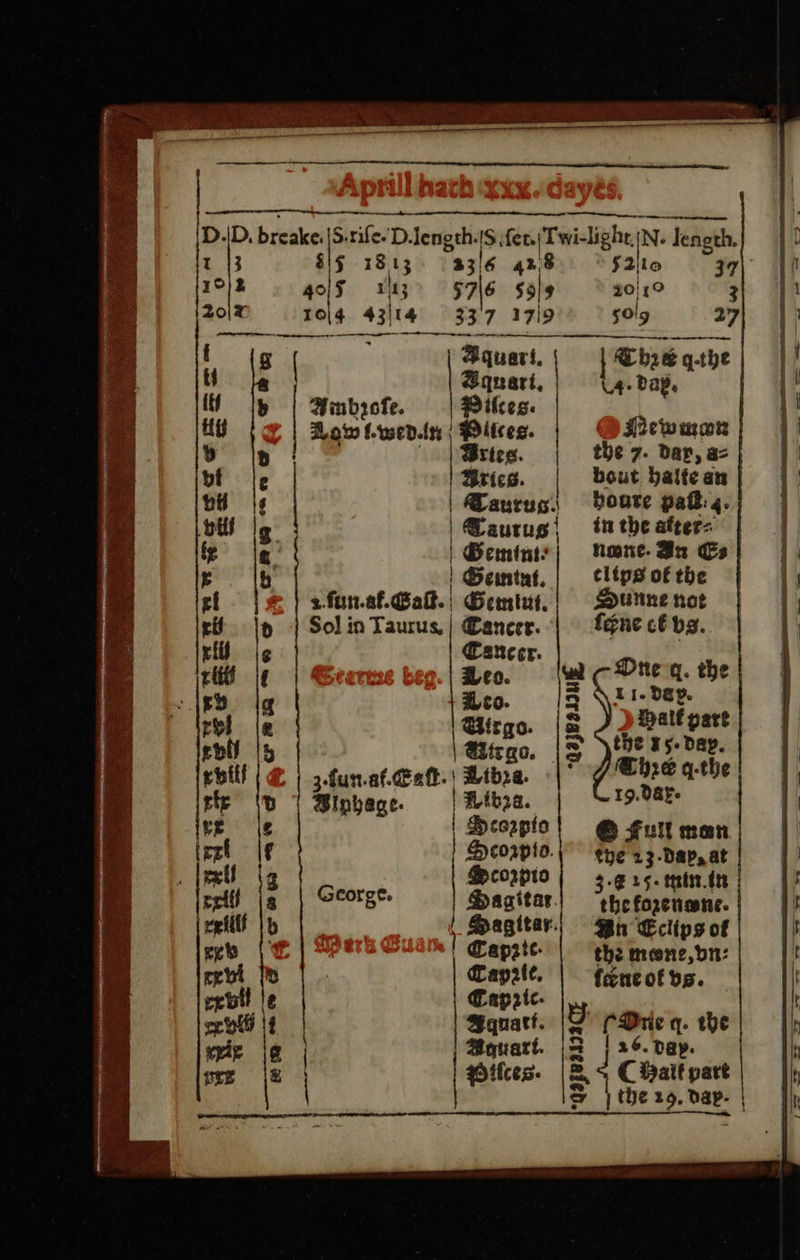 Aprill hath xxx. dayes.
D. D. breake. S. rise. D. length. S. set. Twi-light. N. length.
1 3 8 5 18 13 23 6 42 8 52 10 37
10 2 40 5 1 13 57 6 59 9 20 10 3
20 10 4 43 14 33 7 17 9 50 9 27
i g Aquari. Three q. the
ii a Aquari. 4. day.
iii b Ambrose. Pisces.
iiii C Low s. wed. in Pisces. Newmoon
v D Aries. the 7. day, a-
vi e Aries. bout halfe an
vii f Taurus. houre past. 4.
viii g Taurus in the after-
ix a Gemini noone. An Ec
x b Gemini. clips of the
xi C 2. sun. af. East. Gemini. Sunne not
xii D Sol in Taurus, Cancer. seene of vs.
xiii e Cancer.
xiiii f Tearme beg. Leo. One q. the
xv g Leo. 11. day.
xvi a Virgo. Half part
xvii b Virgo. the 15. day.
xviii C 3. sun. af. East. Libra. Three q. the
xix D Alphage. Libra. 19. day.
Increaseth
xx e Scorpio Full moon
xxi f Scorpio. the 23. day, at
xxii g Scorpio 3. & 15. min. in
xxiii a George. Sagitar. the forenoone.
xxiiii b Sagitar. An Eclips of
xxv C Mark Euan. Capric. the moone, vn-
xxvi D Capric. seene of vs.
xxvii e Capric.
xxviii f Aquari. One q. the
xxix g Aquari. 26. day.
xxx a Pisces. Half part
the 29. day.